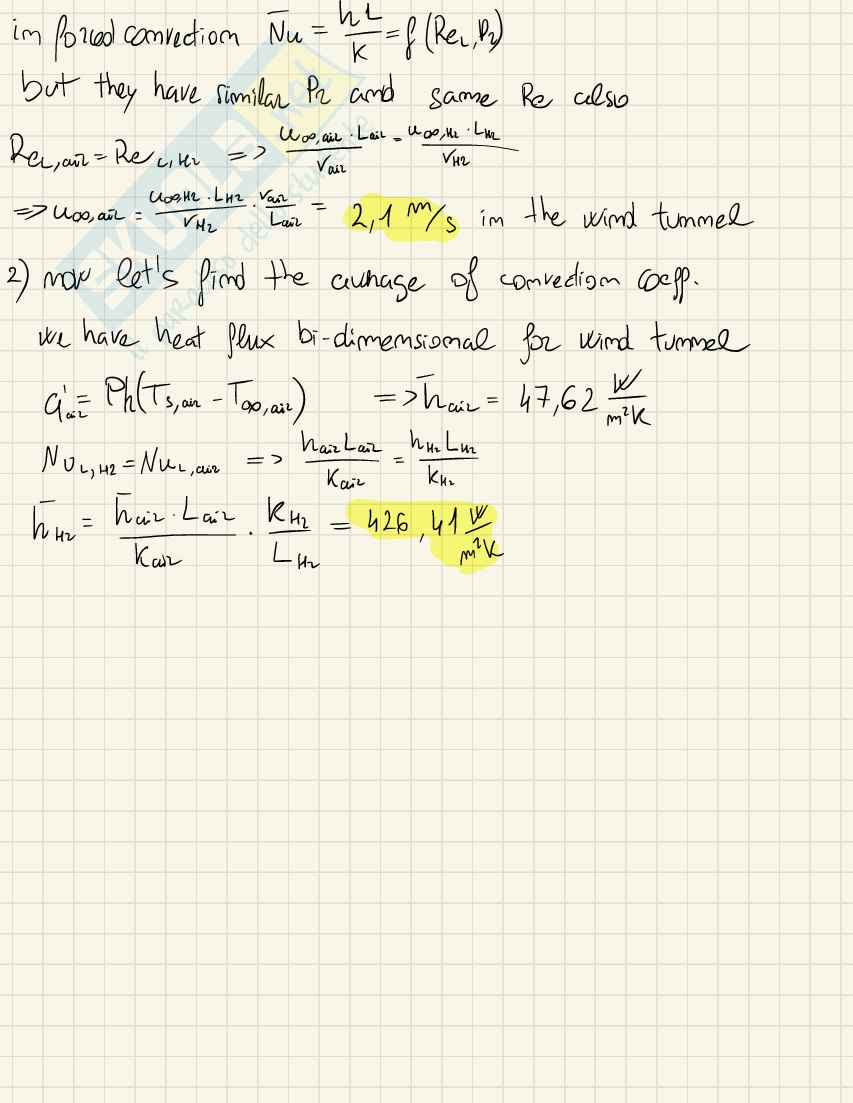 in forced convection N̄u = hL/K = f(ReL, Pr)
but they have similar Pr and same Re also
ReL,air = ReL,H2 => u∞,air · Lair / νair = u∞,H2 · LH2 / νH2
=> u∞,air = u∞,H2 · LH2 / νH2 · νair / Lair = 2,1 m/s in the wind tunnel
2) now let's find the average of convection coeff.
we have heat flux bi-dimensional for wind tunnel
q'air = Ph(Ts,air - T∞,air) => h̄air = 47,62 W/m²K
NuL,H2 = NuL,air => hair Lair / Kair = hH2 LH2 / kH2
h̄H2 = h̄air · Lair / Kair · KH2 / LH2 = 426,41 W/m²K